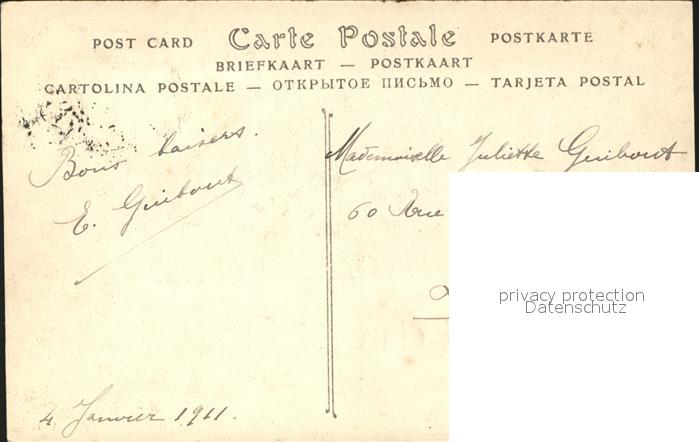 POST CARD Carte Postale POSTKARTE
BRIEFKAART — POSTKAART
CARTOLINA POSTALE — ОТКРЫТОЕ ПИСЬМО — TARJETA POSTAL
Bons baisers.
E. Guibout
4 Janvier 1911.
Mademoiselle Juliette Guibout
60 Rue
privacy protection
Datenschutz